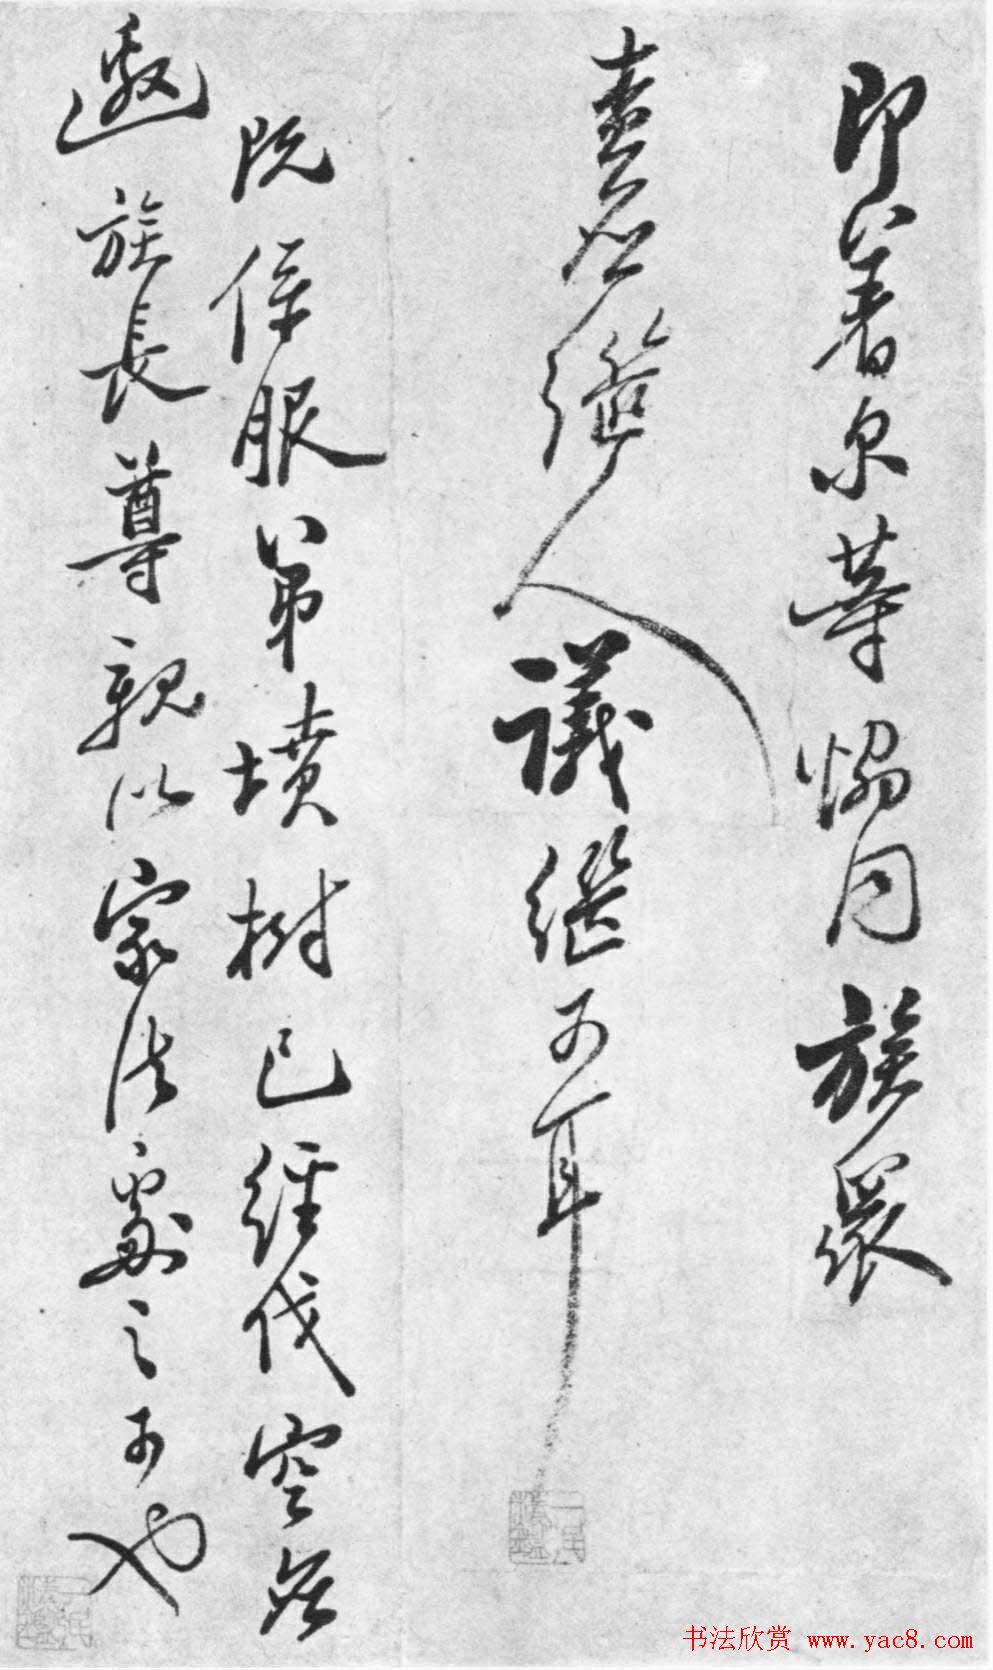 即着尔等恊同族眾
繼人議繼可耳
既係服弟墳樹已經伐空
邀族長尊親以家法處之可也
书法欣赏 www.yac8.com